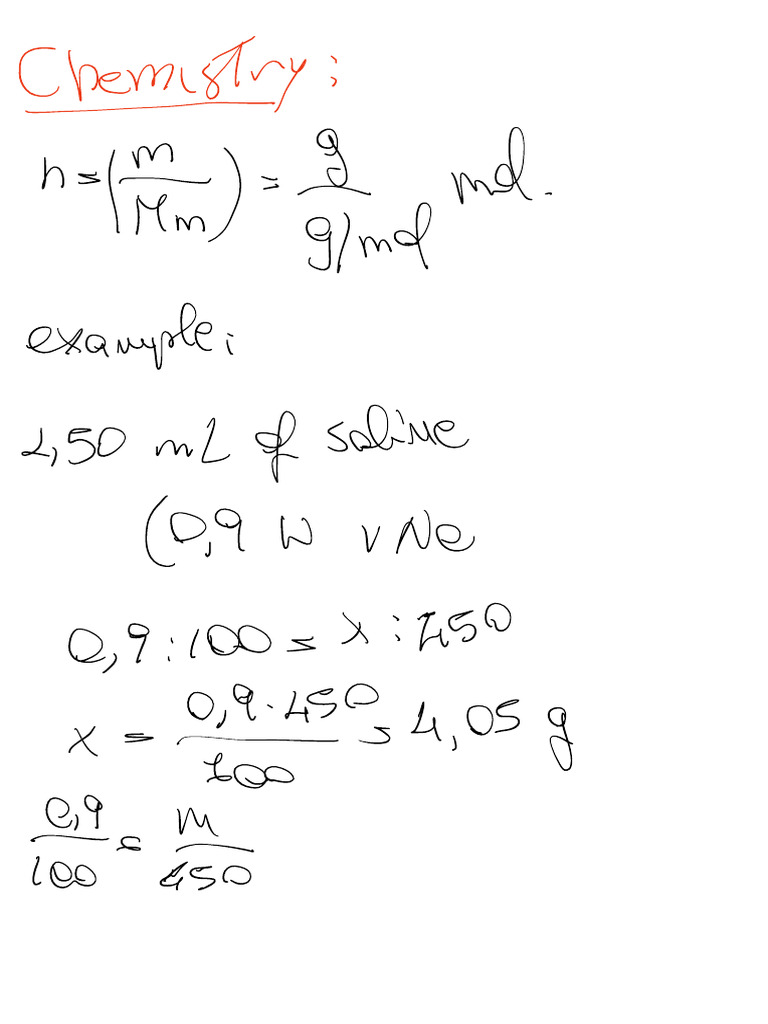 Chemistry:
n = (m / Mm) = g / g/mol mol.
example:
450 mL of saline
(0,9 W v Ne
0,9 : 100 = x : 450
x = 0,9 · 450 / 100 = 4,05 g
0,9 / 100 = m / 450